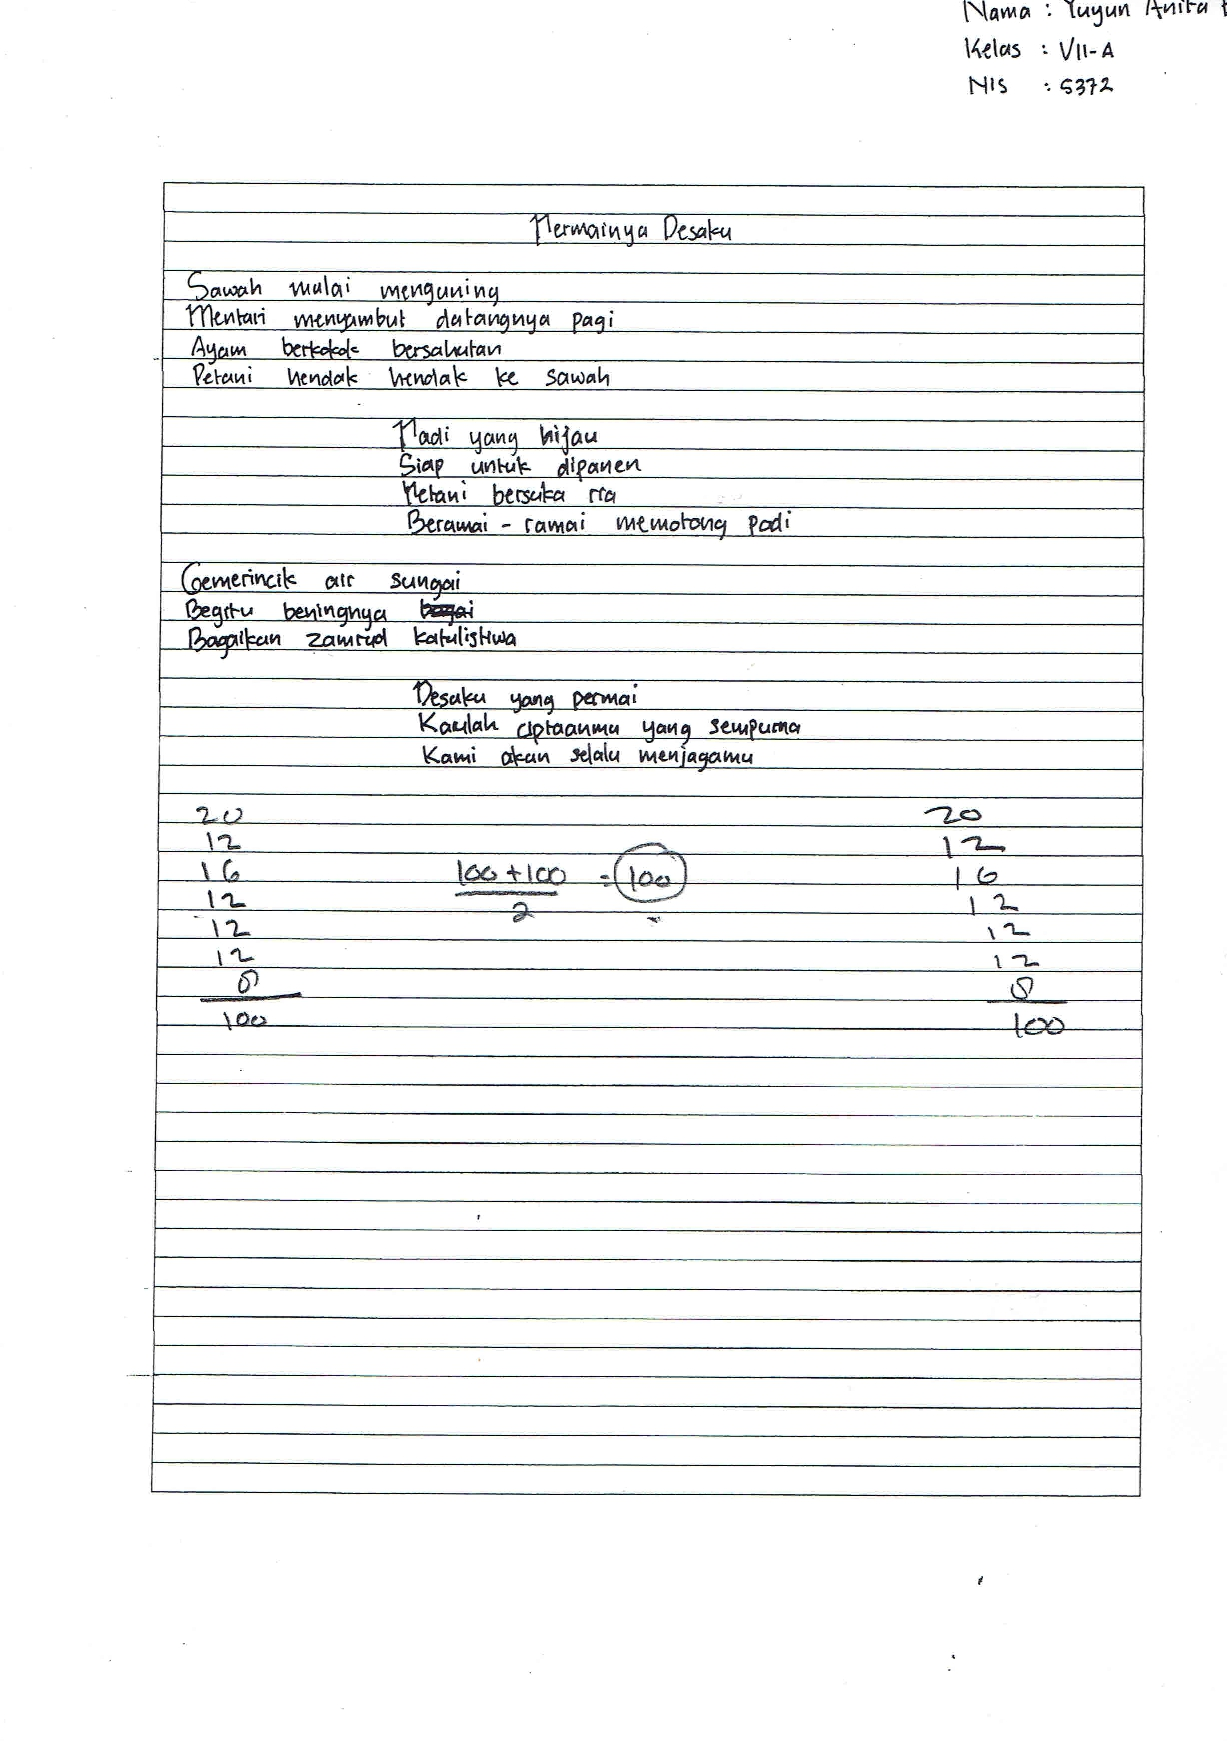 Nama : Yuyun Anita
Kelas : VII-A
NIS : 5372
Permainya Desaku
Sawah mulai menguning
Mentari menyambut datangnya pagi
Ayam berkokok bersahutan
Petani hendak hendak ke sawah
Padi yang hijau
Siap untuk dipanen
Petani bersuka ria
Beramai - ramai memotong padi
Gemerincik air sungai
Begitu beningnya
Bagaikan zamrud katulistiwa
Desaku yang permai
Kaulah ciptaanmu yang sempurna
Kami akan selalu menjagamu
20 20
12 12
16 100 + 100 = 100 16
12 2 12
12 12
12 12
8 8
100 100